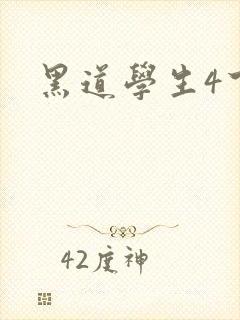 黑道學生4
42度神